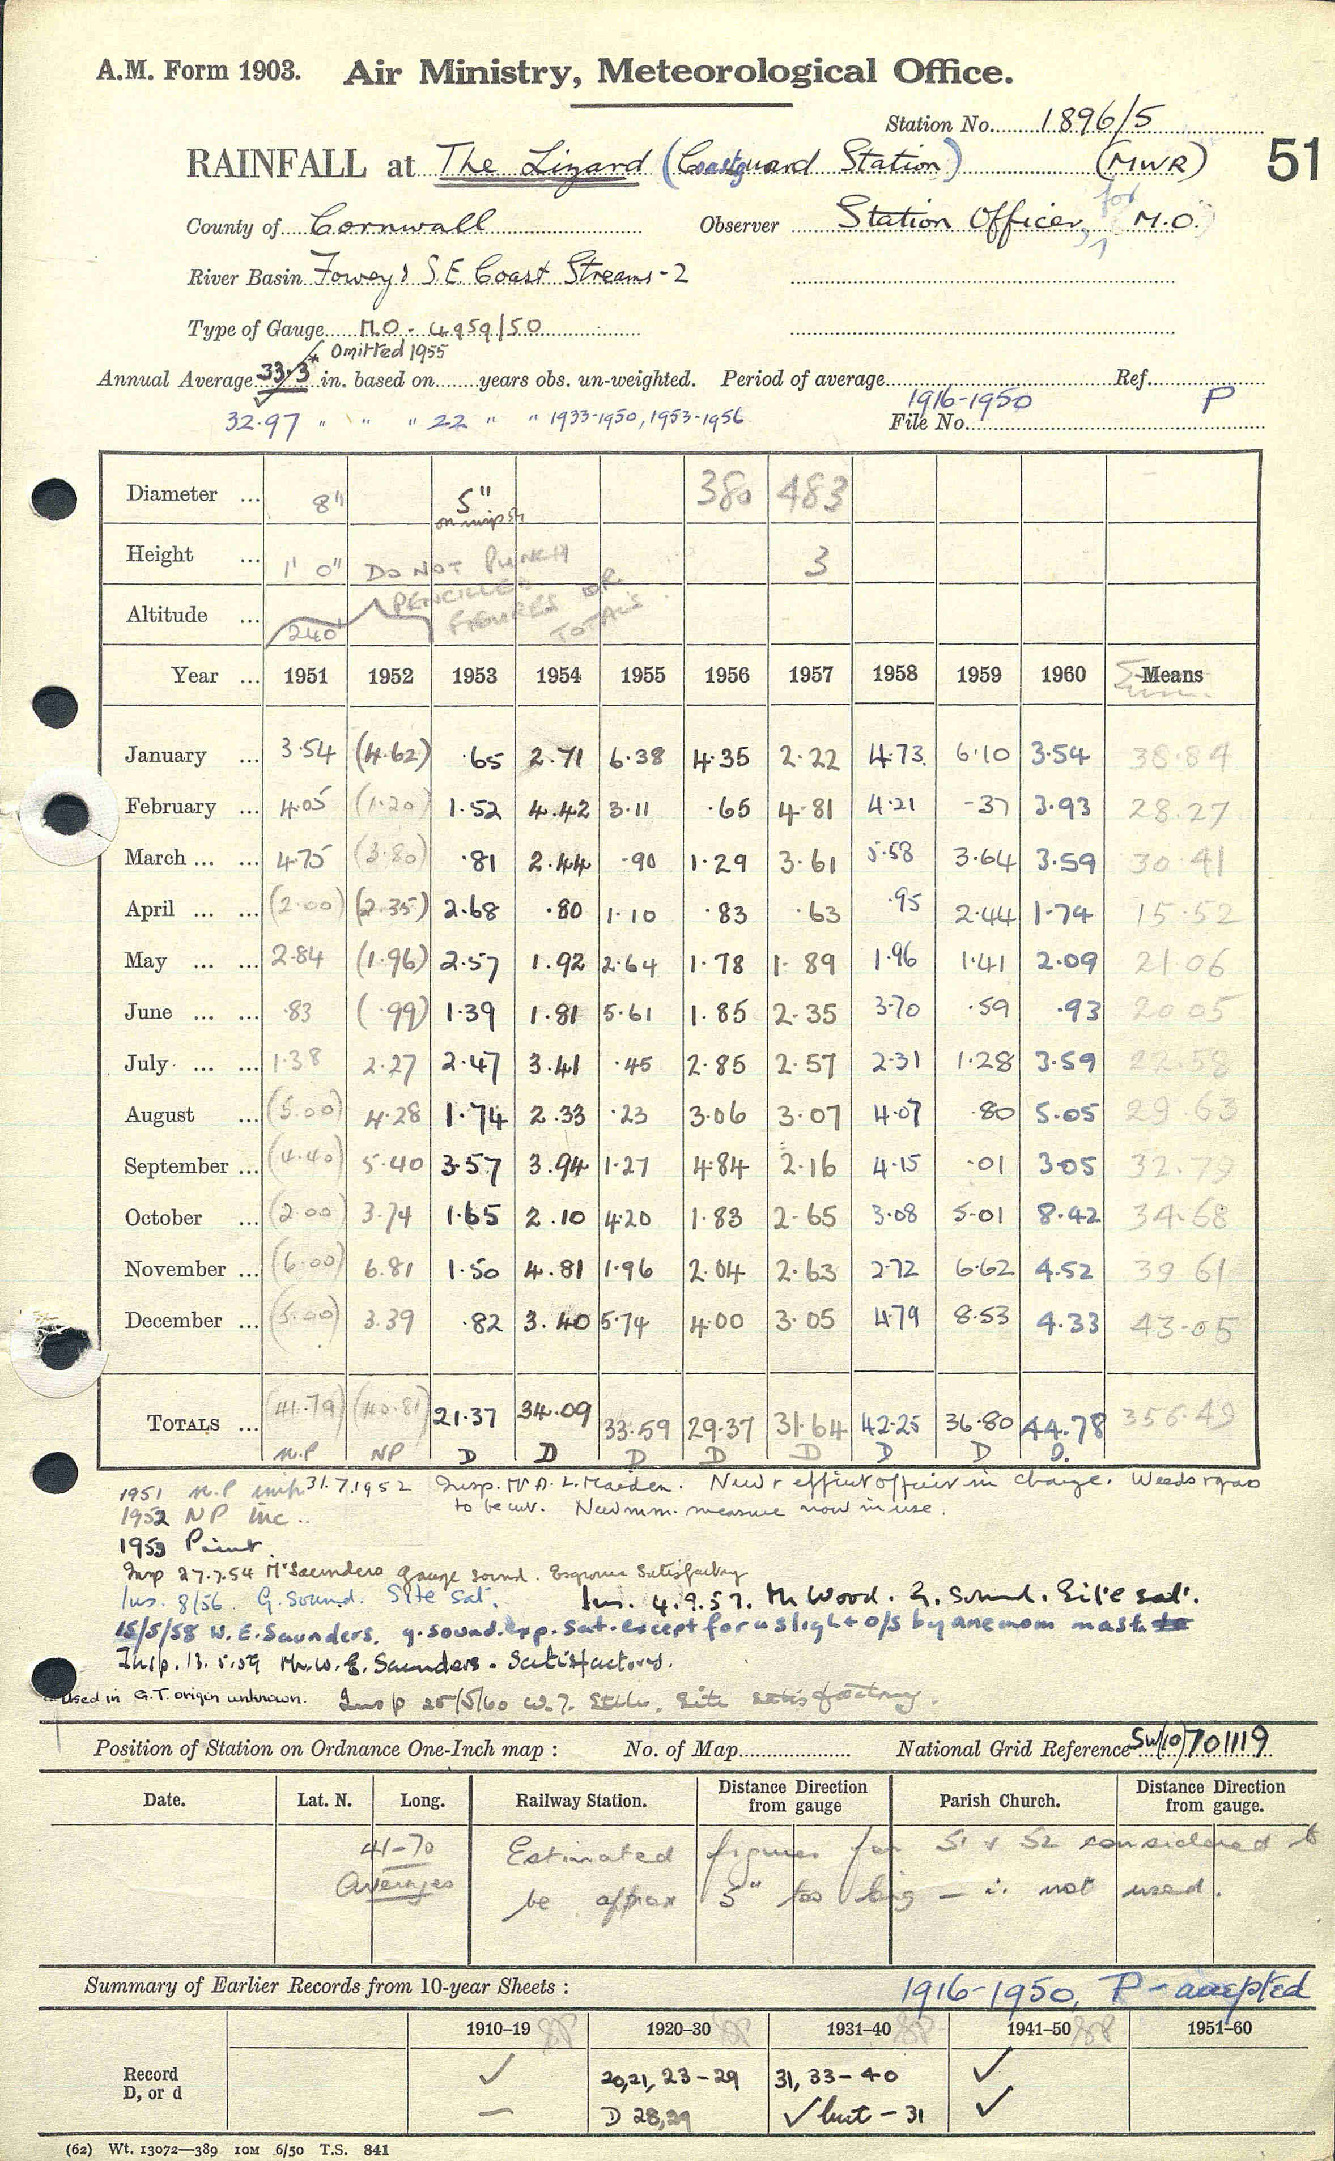 A.M. Form 1903. Air Ministry, Meteorological Office.
Station No. 1896/5
RAINFALL at The Lizard (Coastguard Station) (MWR) 51
County of Cornwall Observer Station Officer, for M.O.
River Basin Fowey & S.E. Coast Streams - 2
Type of Gauge M.O. - 4959/50
Omitted 1955
Annual Average 33.3* in. based on years obs. un-weighted. Period of average Ref.
32.97 " " " 22 " " 1933-1950, 1953-1956 1916-1950 File No. P
Diameter ... 8" 5" 380 483
Height ... 1' 0" DO NOT PUNCH 3
PENCILLED FIGURES OR TOTALS
Altitude ... 240'
Year ... 1951 1952 1953 1954 1955 1956 1957 1958 1959 1960 Means
January ... 3.54 (4.62) .65 2.71 6.38 4.35 2.22 4.73 6.10 3.54 38.84
February ... 4.05 (1.20) 1.52 4.42 3.11 .65 4.81 4.21 .37 3.93 28.27
March ... ... 4.75 (3.80) .81 2.44 .90 1.29 3.61 5.58 3.64 3.59 30.41
April ... ... (2.00) (2.35) 2.68 .80 1.10 .83 .63 .95 2.44 1.74 15.52
May ... ... 2.84 (1.96) 2.57 1.92 2.64 1.78 1.89 1.96 1.41 2.09 21.06
June ... ... .83 (.99) 1.39 1.81 5.61 1.85 2.35 3.70 .59 .93 20.05
July ... ... 1.38 2.27 2.47 3.41 .45 2.85 2.57 2.31 1.28 3.59 22.58
August ... (5.00) 4.28 1.74 2.33 .23 3.06 3.07 4.07 .80 5.05 29.63
September ... (4.40) 5.40 3.57 3.94 1.27 4.84 2.16 4.15 .01 3.05 32.79
October ... (2.00) 3.74 1.65 2.10 4.20 1.83 2.65 3.08 5.01 8.42 34.68
November ... (6.00) 6.81 1.50 4.81 1.96 2.04 2.63 2.72 6.62 4.52 39.61
December ... (5.00) 3.39 .82 3.40 5.74 4.00 3.05 4.79 8.53 4.33 43.05
TOTALS ... (41.79) (40.81) 21.37 34.09 33.59 29.37 31.64 42.25 36.80 44.78 356.49
N.P NP D D D D D D D D.
1951 N.P 31.7.1952 Insp. Mr A. L. Maiden. New & efficient officer in charge. Weeds
to be cut. New mm. measure now in use.
1952 NP inc.
1953 Print.
Insp 27.7.54 Mr Saunders gauge sound. Exposure Satisfactory
Ins. 8/56. G. Sound. Site sat. Ins. 4.9.57. Mr Wood. G. Sound. Site sat.
15/5/58 W. E. Saunders. g. sound. exp. sat. except for a slight o/s by anemom mast
Insp. 13.5.59 Mr W. E. Saunders. Satisfactory.
* Used in G.T. origin unknown. Insp 25/5/60 W. J. Site satisfactory.
Position of Station on Ordnance One-Inch map : No. of Map National Grid Reference SW(10)701119
Date. Lat. N. Long. Railway Station. Distance Direction from gauge Parish Church. Distance Direction from gauge.
41-70 Estimated figures for 51 & 52 considered to
Averages be approx 5" too big - ∴ not used.
Summary of Earlier Records from 10-year Sheets : 1916-1950, P - accepted
1910–19 1920–30 1931–40 1941–50 1951–60
Record ✓ 20,21, 23-29 31, 33-40 ✓
D, or d — D 28,29 ✓ but - 31 ✓
(62) Wt. 13072—389 10M 6/50 T.S. 841